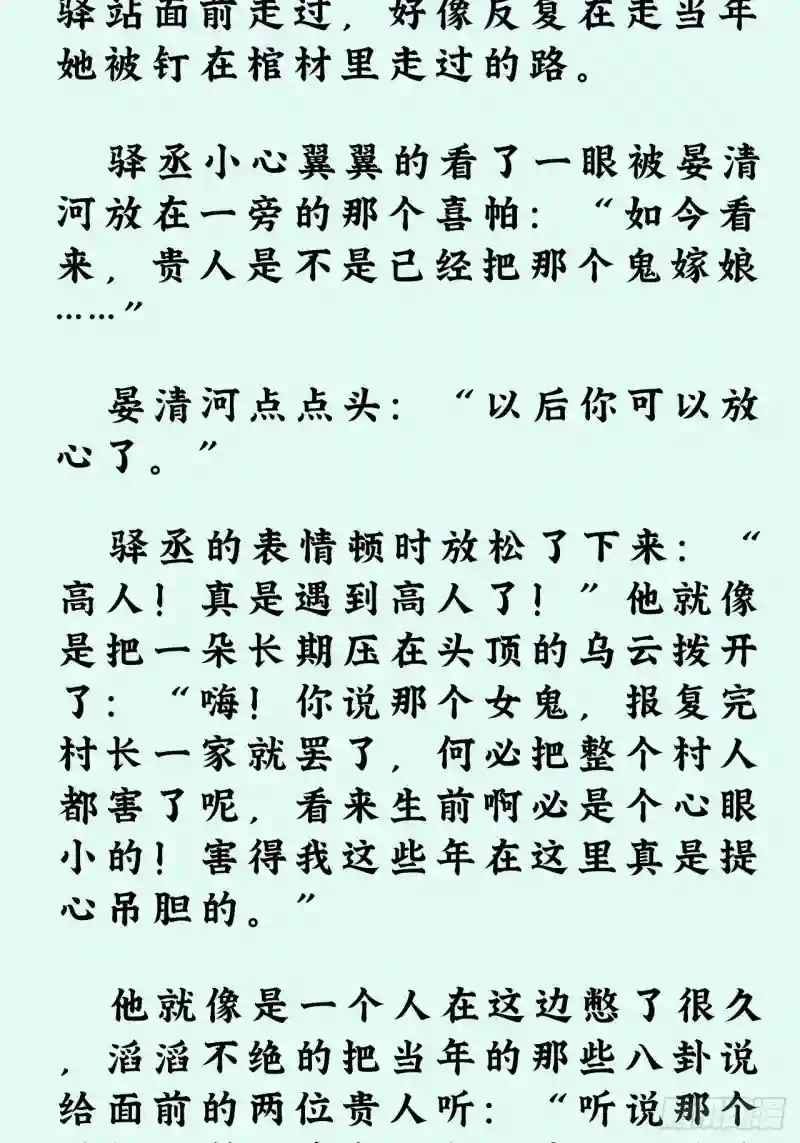 驿站面前走过，好像反复在走当年
她被钉在棺材里走过的路。
驿丞小心翼翼的看了一眼被晏清
河放在一旁的那个喜帕：“如今看
来，贵人是不是已经把那个鬼嫁娘
……”
晏清河点点头：“以后你可以放
心了。”
驿丞的表情顿时放松了下来：“
高人！真是遇到高人了！”他就像
是把一朵长期压在头顶的乌云拨开
了：“嗨！你说那个女鬼，报复完
村长一家就罢了，何必把整个村人
都害了呢，看来生前啊必是个心眼
小的！害得我这些年在这里真是提
心吊胆的。”
他就像是一个人在这边憋了很久
，滔滔不绝的把当年的那些八卦说
给面前的两位贵人听：“听说那个